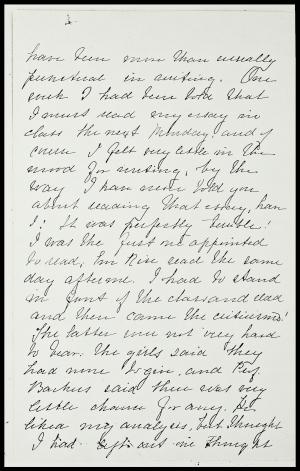 have been more than usually
punctual in writing. One
week I had been told that
I must read my essay in
class the next Monday and of
course I felt very little in the
mood for writing, by the
way I have never told you
about reading that essay, have
I? It was perfectly terrible!
I was the first one appointed
to read, Em Rise read the same
day after me. I had to stand
in front of the class and read
and then came the criticisms!
The latter were not very hard
to bear. The girls said they
had none to give, and Prof.
Backus said there was very
little chance for any. He
liked my analysis, but thought
I had left out one thought